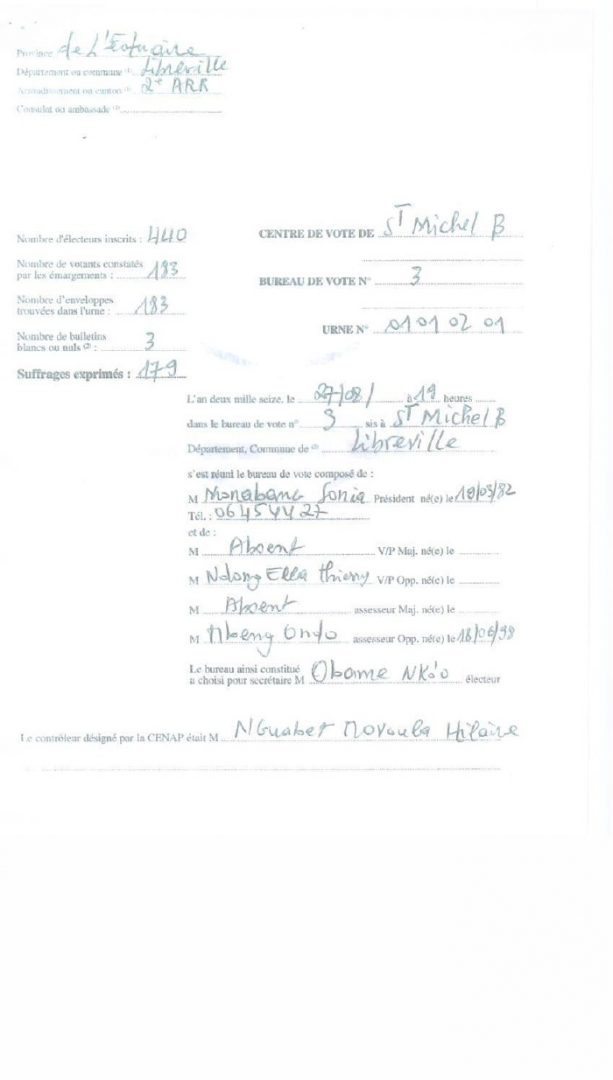 Province de L'Estuaire
Département ou commune (1) Libreville
Arrondissement ou canton (1) 2e ARR
Consulat ou ambassade (2)
Nombre d'électeurs inscrits : 440
Nombre de votants constatés
par les émargements : 183
Nombre d'enveloppes
trouvées dans l'urne : 183
Nombre de bulletins
blancs ou nuls (2) : 3
Suffrages exprimés : 179
CENTRE DE VOTE DE ST Michel B
BUREAU DE VOTE N° 3
URNE N° 01 01 02 01
L'an deux mille seize, le 27/08/ à 19 heures
dans le bureau de vote n° 3 sis à ST Michel B
Département, Commune de (2) Libreville
s'est réuni le bureau de vote composé de :
M Sonia Président né(e) le
Tél. : 06454427
et de :
M Absent V/P Maj. né(e) le
M Ndong Ella Thierry V/P Opp. né(e) le
M Absent assesseur Maj. né(e) le
M Ondo assesseur Opp. né(e) le 18/06/98
Le bureau ainsi constitué
a choisi pour secrétaire M Obame électeur
Le contrôleur désigné par la CENAP était M Hilaire